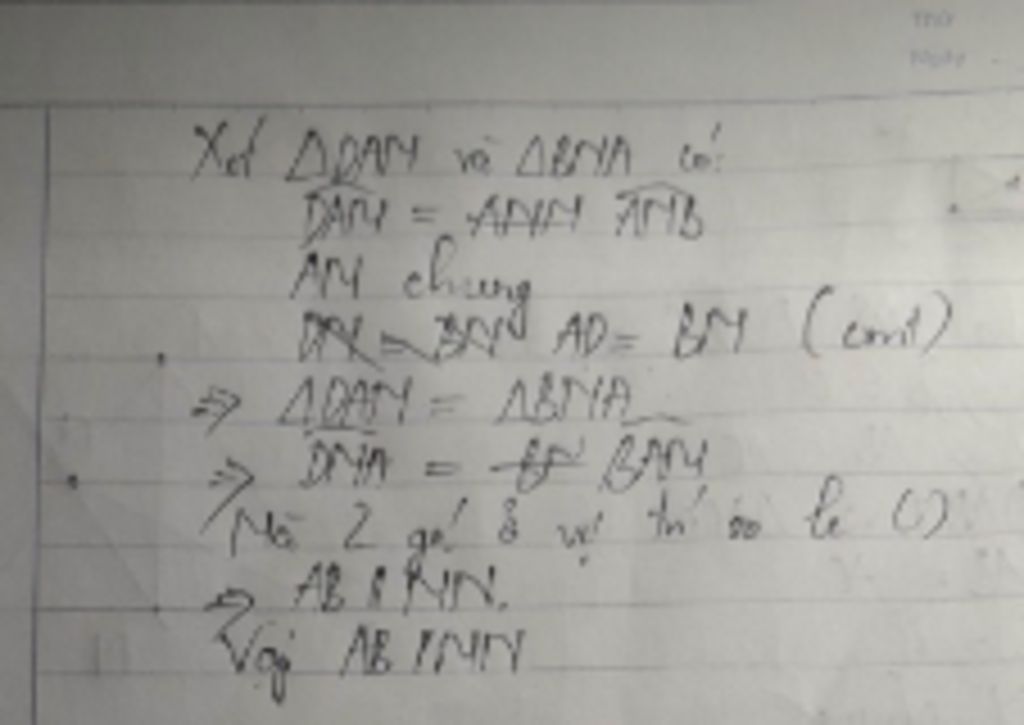 Thứ
Ngày
Xét ΔDAM và ΔBMA có:
DAM = AMB
AM chung
AD = BM (cmt)
⇒ ΔDAM = ΔBMA
⇒ DMA = BAM
Mà 2 gó ở vị trí so le (:)
⇒ AB // MN.
Vậy AB // MN